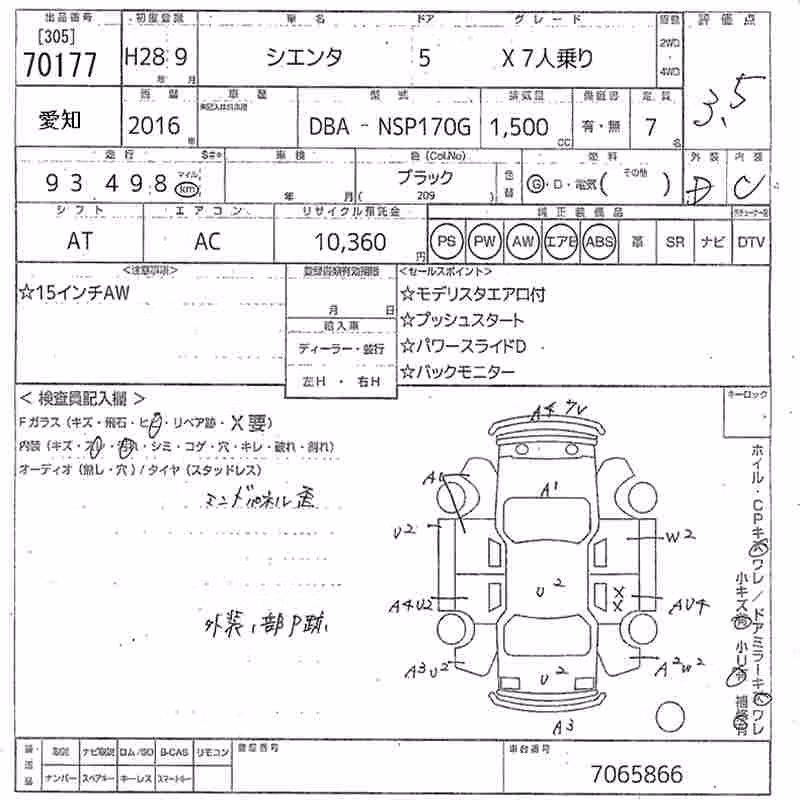 出品番号 初度登録 車名 ドア グレード 評価点
[305]
70177 H28 9 シエンタ 5 X 7人乗り 2WD 4WD 3.5
年 月
車歴 型式 排気量 定員
愛知 2016 DBA - NSP170G 1,500 有・無 7
年 CC 名
走行 車検 色 (Col.No) 色替 燃料 外装 内装
93 498 マイル km 年 月 ブラック ( 209 ) G・D・電気 ( その他 ) D C
シフト エアコン リサイクル預託金 純正装備品
AT AC 10,360 円 PS PW AW エアB ABS 革 SR ナビ DTV
<注意事項> <セールスポイント>
☆15インチAW ☆モデリスタエアロ付
月 日 ☆プッシュスタート
輸入車 ☆パワースライドD
ディーラー・並行 ☆バックモニター
左H ・ 右H
<検査員記入欄> キーロック
Fガラス (キズ・飛石・ヒビ・リペア跡・X要)
内装 (キズ・スレ・汚れ・シミ・コゲ・穴・キレ・破れ・割れ)
オーディオ (無し・穴) / タイヤ (スタッドレス)
外装1部P跡
A1
U2 W2
U2
A4U2 X X AU4
A3U2 U2 A2W2
A3
ホイル・CPキズワレ/ドアミラーキズワレ
ナビ取説 ロム/SD B-CAS リモコン 登録番号 車台番号
ナンバー スペアキー キーレス スマートキー 7065866